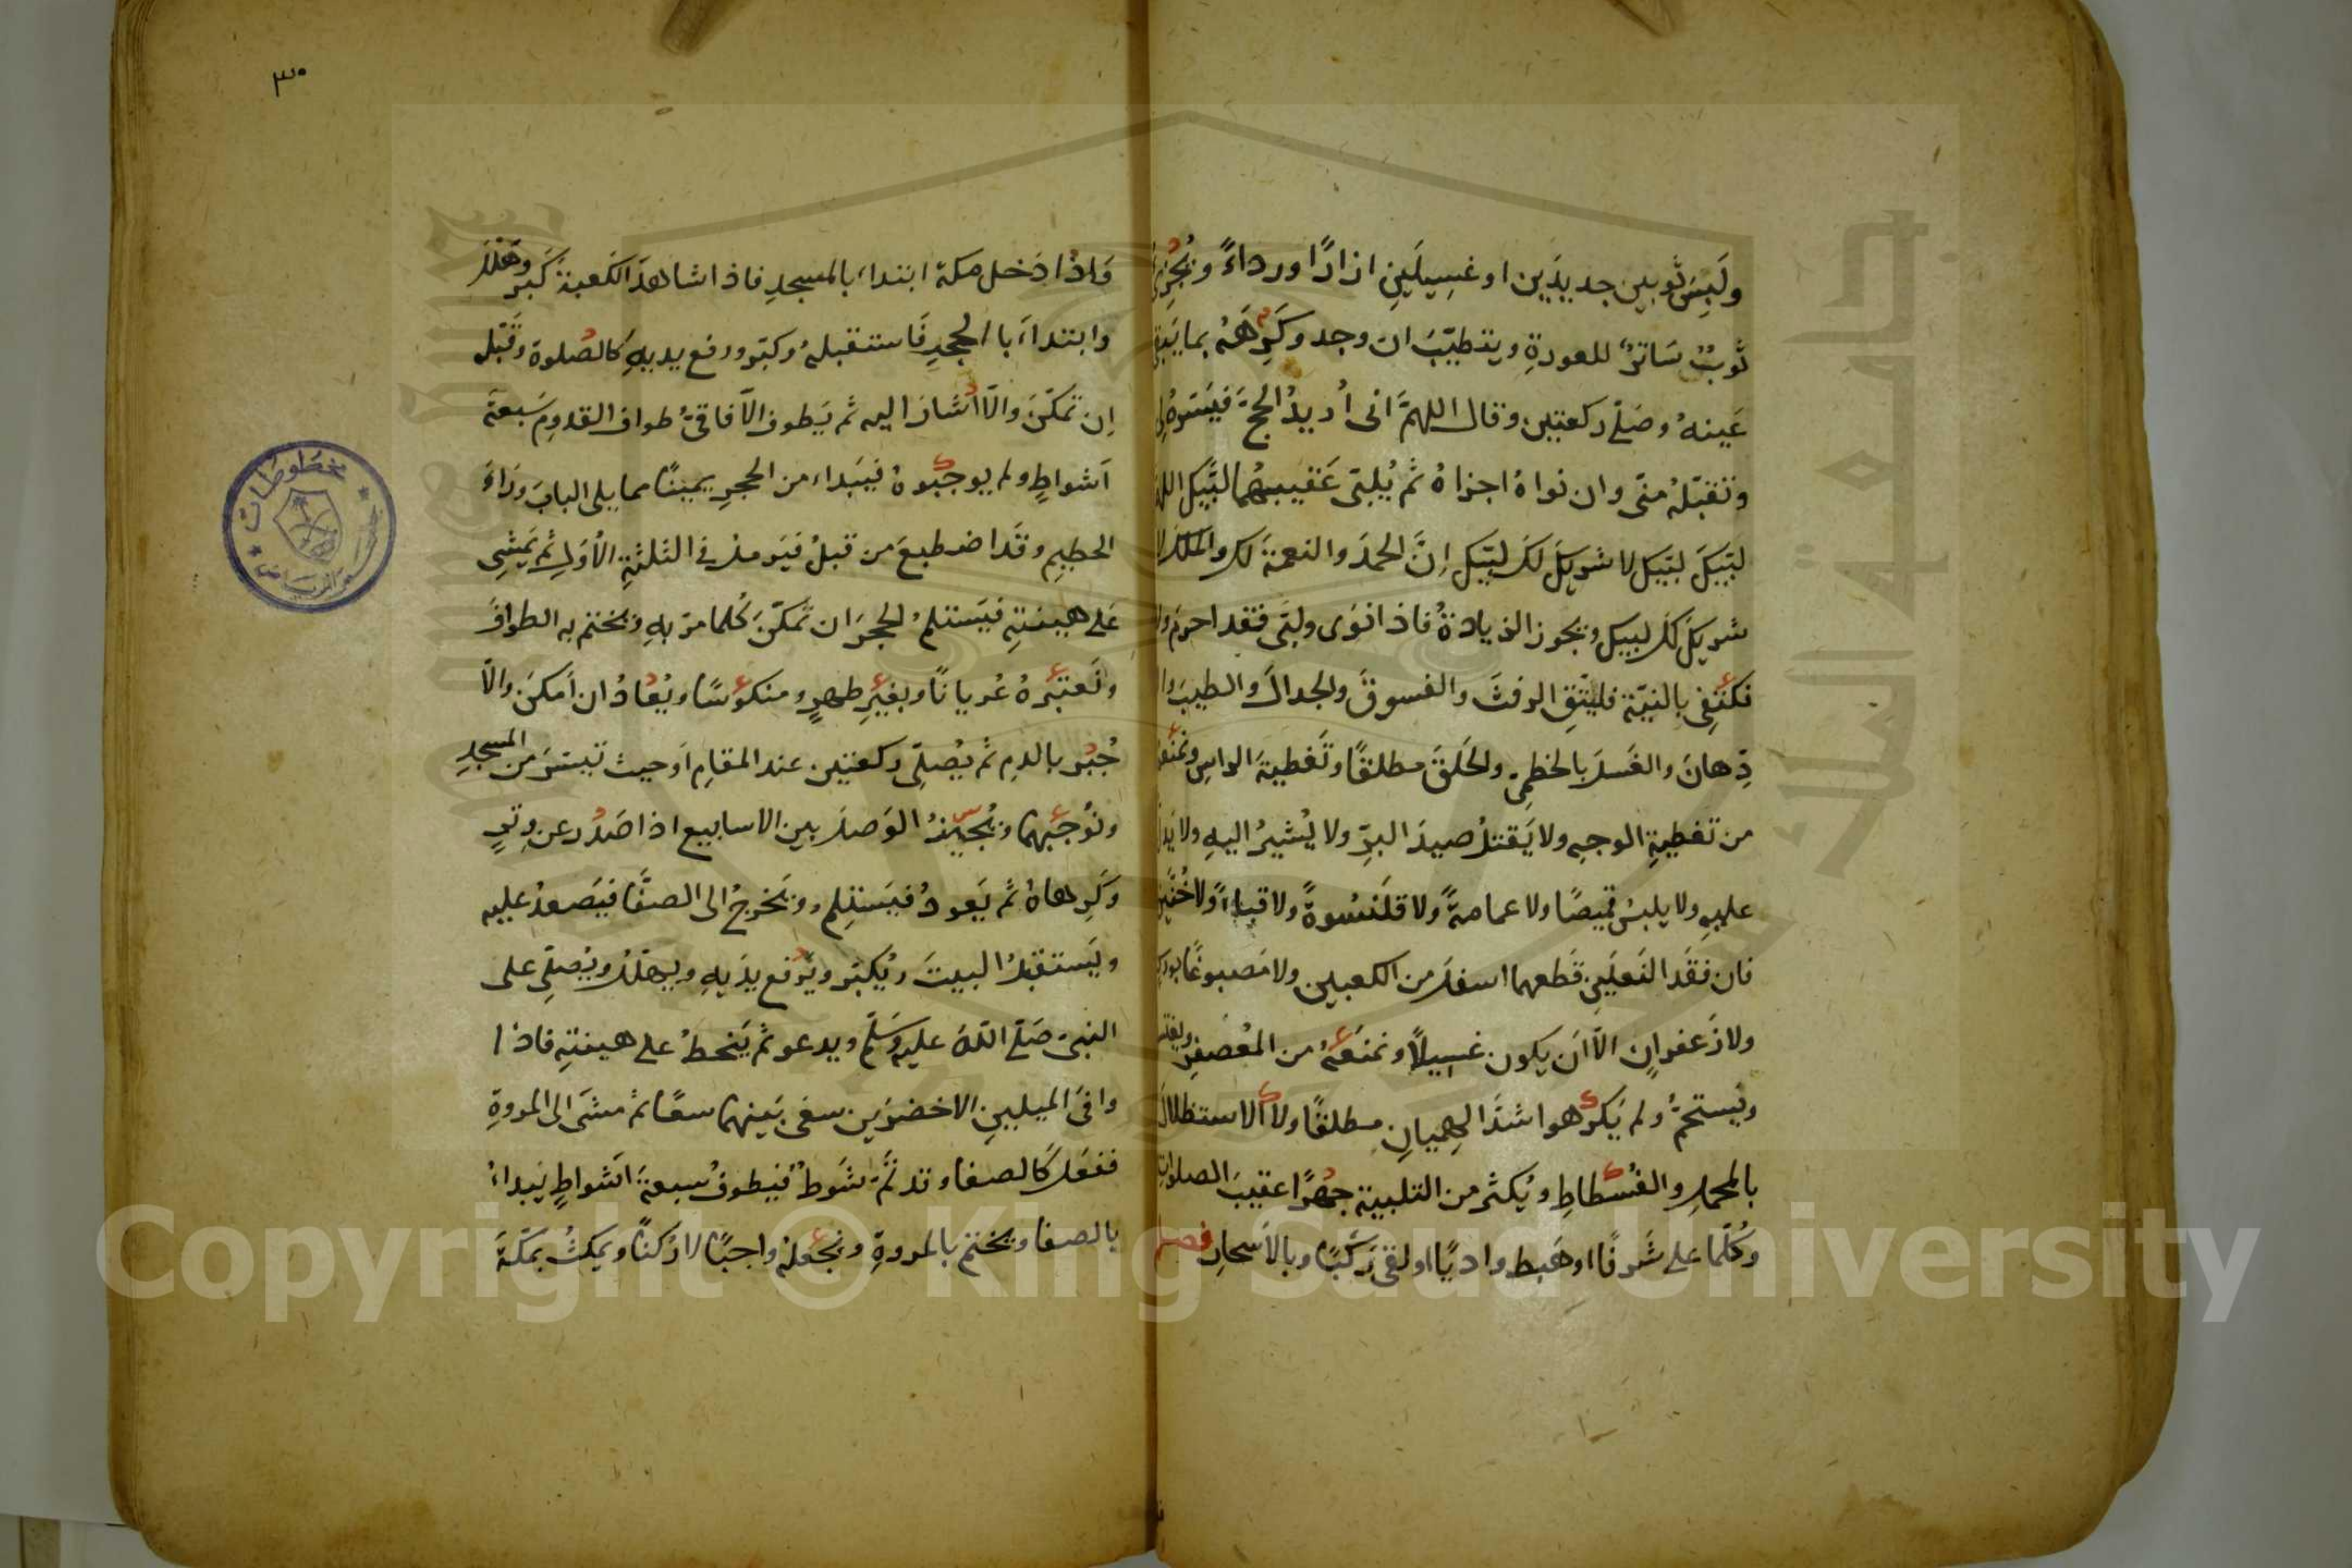 ولَبِسَ ثَوبين جديدَين او غسِيلَين ازارًا ورداءً ويُجزِئُ
ثَوبٌ سَاترٌ للعورةِ ويتطيّبَ ان وجد وكَرِهَهُ بما يَبقى
عَينهُ وصَلّے ركعتين وقال اللهمَّ انى اُريدُ الحجّ فيَسّرهُ لى
وتقبّلهُ منّى وان نواهُ اجزاهُ ثم يُلبّى عَقيبهُما لبّيك اللهم
لبّيكَ لبّيك لا شريكَ لكَ لبّيك اِنَّ الحمدَ والنعمةَ لك والملك لا
شريكَ لك لبيك ويجوز الزيادةُ فاذا نوَى ولبّى فقد احرم ولا
نكتفِى بالنيّة فليتّقِ الرفثَ والفسوقَ والجدالَ والطيبَ والا
دّهانَ والغَسلَ بالخطمِى والحَلقَ مطلقًا وتَغطيةَ الراسِ ونَمنَعها
من تغطيةِ الوجهِ ولا يَقتلُ صيدَ البرِّ ولا يُشيرُ اليهِ ولا يَدلُّ
عليهِ ولا يلبسُ قميصًا ولا عمامةً ولا قلَنسُوةً ولا قباءً ولا خُفَّين
فان فقَد النَعلَينِ قَطعهما اسفلَ من الكعبين ولا مَصبوغًا بورس
ولا زَعفرانٍ الّا اَن يكون غسِيلًا ونمنَعهُ من المُعصفرِ ويغتسل
ويَستحمُّ ولم يَكرَهوا شدَّ الهِميانِ مطلقًا ولا الاستظلالَ
بالمحملِ والفُسْطاطِ ويُكثر من التلبية جهرًا عقيبَ الصلوات
وكُلّما علے شَرفًا او هَبط واديًا او لقى رَكبًا وبالاَسحارِ فصل
٣٠
وَاذا دَخل مكة ابتداء بالمسجدِ فاذا شاهدَ الكَعبةَ كَبّر وهَلّلَ
وابتداءَ بالحجرِ فَاستقبلهُ وكبّر ورفع يديهِ كالصّلوة وقَبّله
اِن تمكّنَ والّا اَشارَ اليه ثم يَطوف الآفاقىُّ طواف القدومِ سَبعةَ
اَشواطٍ ولم يوجبُوهُ فيَبداء من الحجرِ يمينًا مما يلى البابَ وَراءَ
الحطيمِ وقَد اضطبعَ من قبلُ فيَرملُ فى الثلثةِ الاُوَلِ ثم يَمشِى
عَلے هينتهِ فيَستلمُ الحجرَ ان تمكّنَ كُلما مرّ بهِ ويختم به الطوافَ
ونَعتبرُهُ عُريانًا وبغيرِ طهرٍ ومنكوسًا ويُعادُ ان اَمكنَ والّا
جُبرَ بالدمِ ثم يُصلّى ركعتين عند المقامِ اَو حيث تيسّرَ من المسجدِ
ونُوجبُهما ويُجيزُ الوَصلَ بين الاسابيع اذا صَدرَ عن وترٍ
وكَرِهاهُ ثم يَعودُ فيَستلم ويَخرجُ الى الصفَا فيَصعدُ عليه
ويَستقبلُ البيتَ ويُكبّر ويَرفع يدَيهِ ويهلّلُ ويُصلّى على
النبىّ صَلّے اللّهُ عليه وسَلّم ويدعو ثم يَنحطُ علے هينتهِ فاذا
وافىَ الميلينِ الاخضرَين سعَى بَينهما سعيًا ثم مشَى الى المروةِ
ففعَل كَالصفا وقد تمَّ شَوطٌ فيَطوفُ سبعةَ اَشواطٍ يَبداءُ
بالصفا ويختم بالمروةِ ونجعلهُ واجبًا لا ركنًا ويمكثُ بمكّةَ
مخطوطات
Copyright © King Saud University